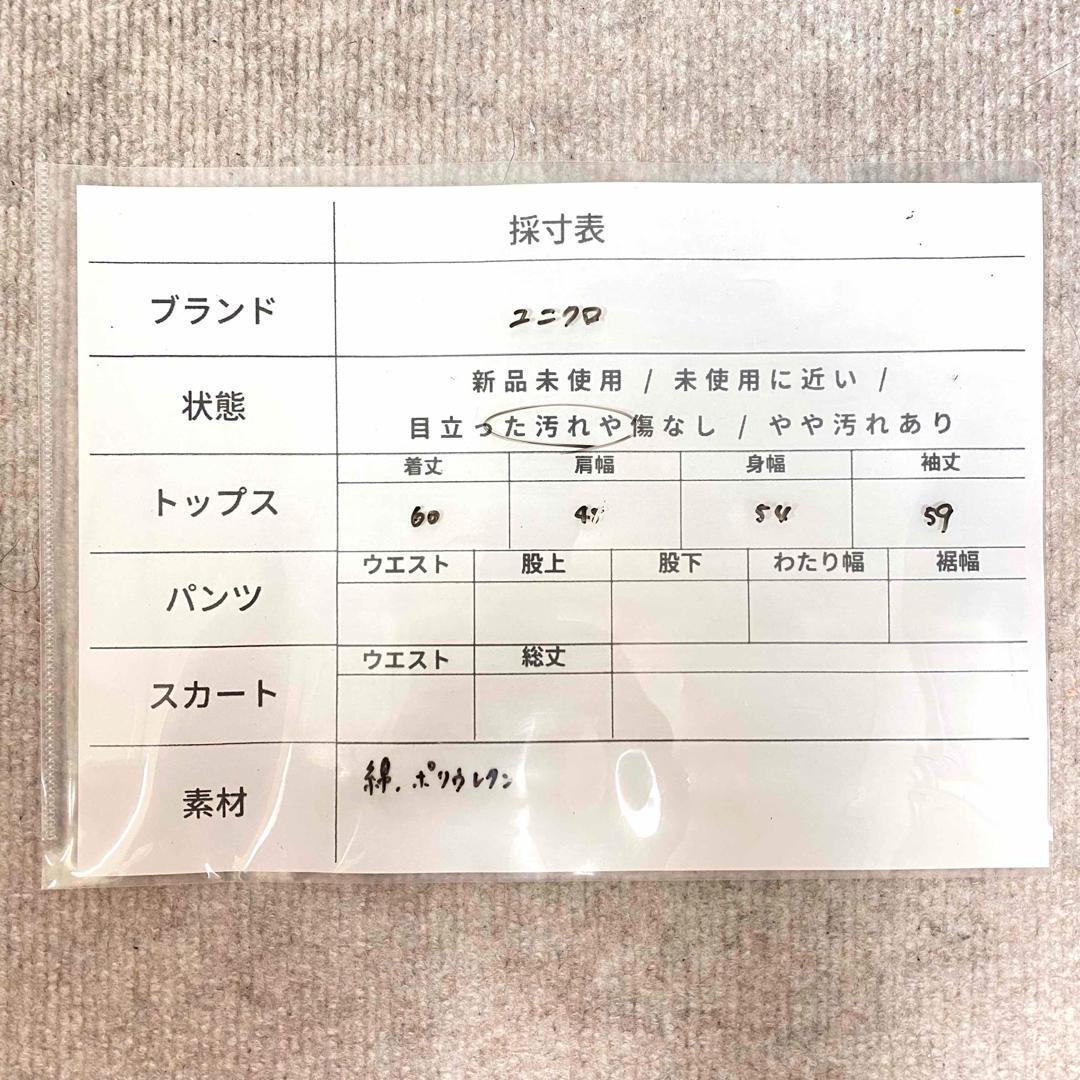 採寸表
ブランド ユニクロ
状態 新品未使用 / 未使用に近い /
目立った汚れや傷なし / やや汚れあり
着丈 肩幅 身幅 袖丈
トップス 60 54 59
ウエスト 股上 股下 わたり幅 裾幅
パンツ
ウエスト 総丈
スカート
素材 綿.ポリウレタン